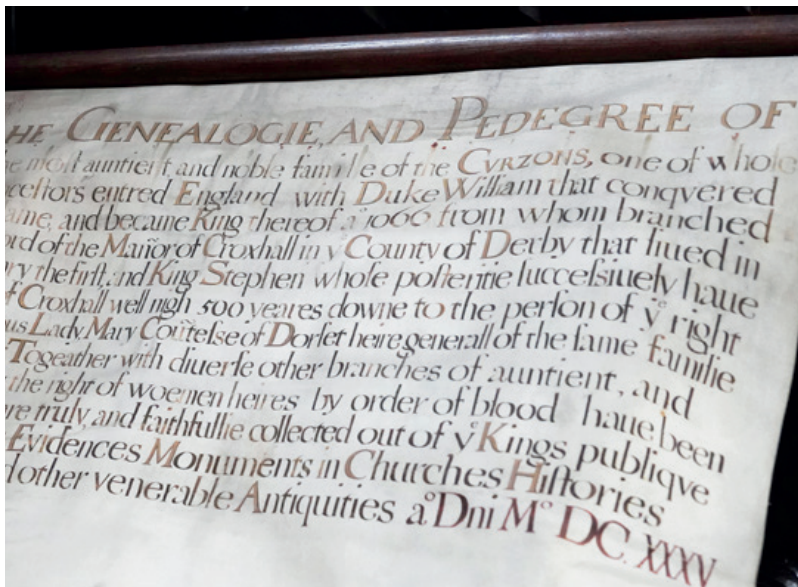 HE GENEALOGIE, AND PEDEGREE OF
e moſt auntient and noble familie of the CVRZONS, one of whoſe
ceſtors entred England with Duke William that conqvered
ame, and became King thereof aº 1066 from whom branched
ord of the Mañor of Croxhall in yͤ County of Derby that liued in
ry the firſt, and King Stephen whoſe poſteritie ſucceſsiuely haue
f Croxhall well nigh 500 yeares downe to the perſon of yͤ right
us Lady, Mary Coūteſse of Dorſet heire generall of the ſame familie
Togeather with diuerſe other branches of auntient, and
the right of woemen heires by order of blood haue been
re truly, and faithfullie collected out of yͤ Kings publiqve
Evidences Monuments in Churches Hiſtories
d other venerable Antiquities aº Dni Mº DC. XXXV